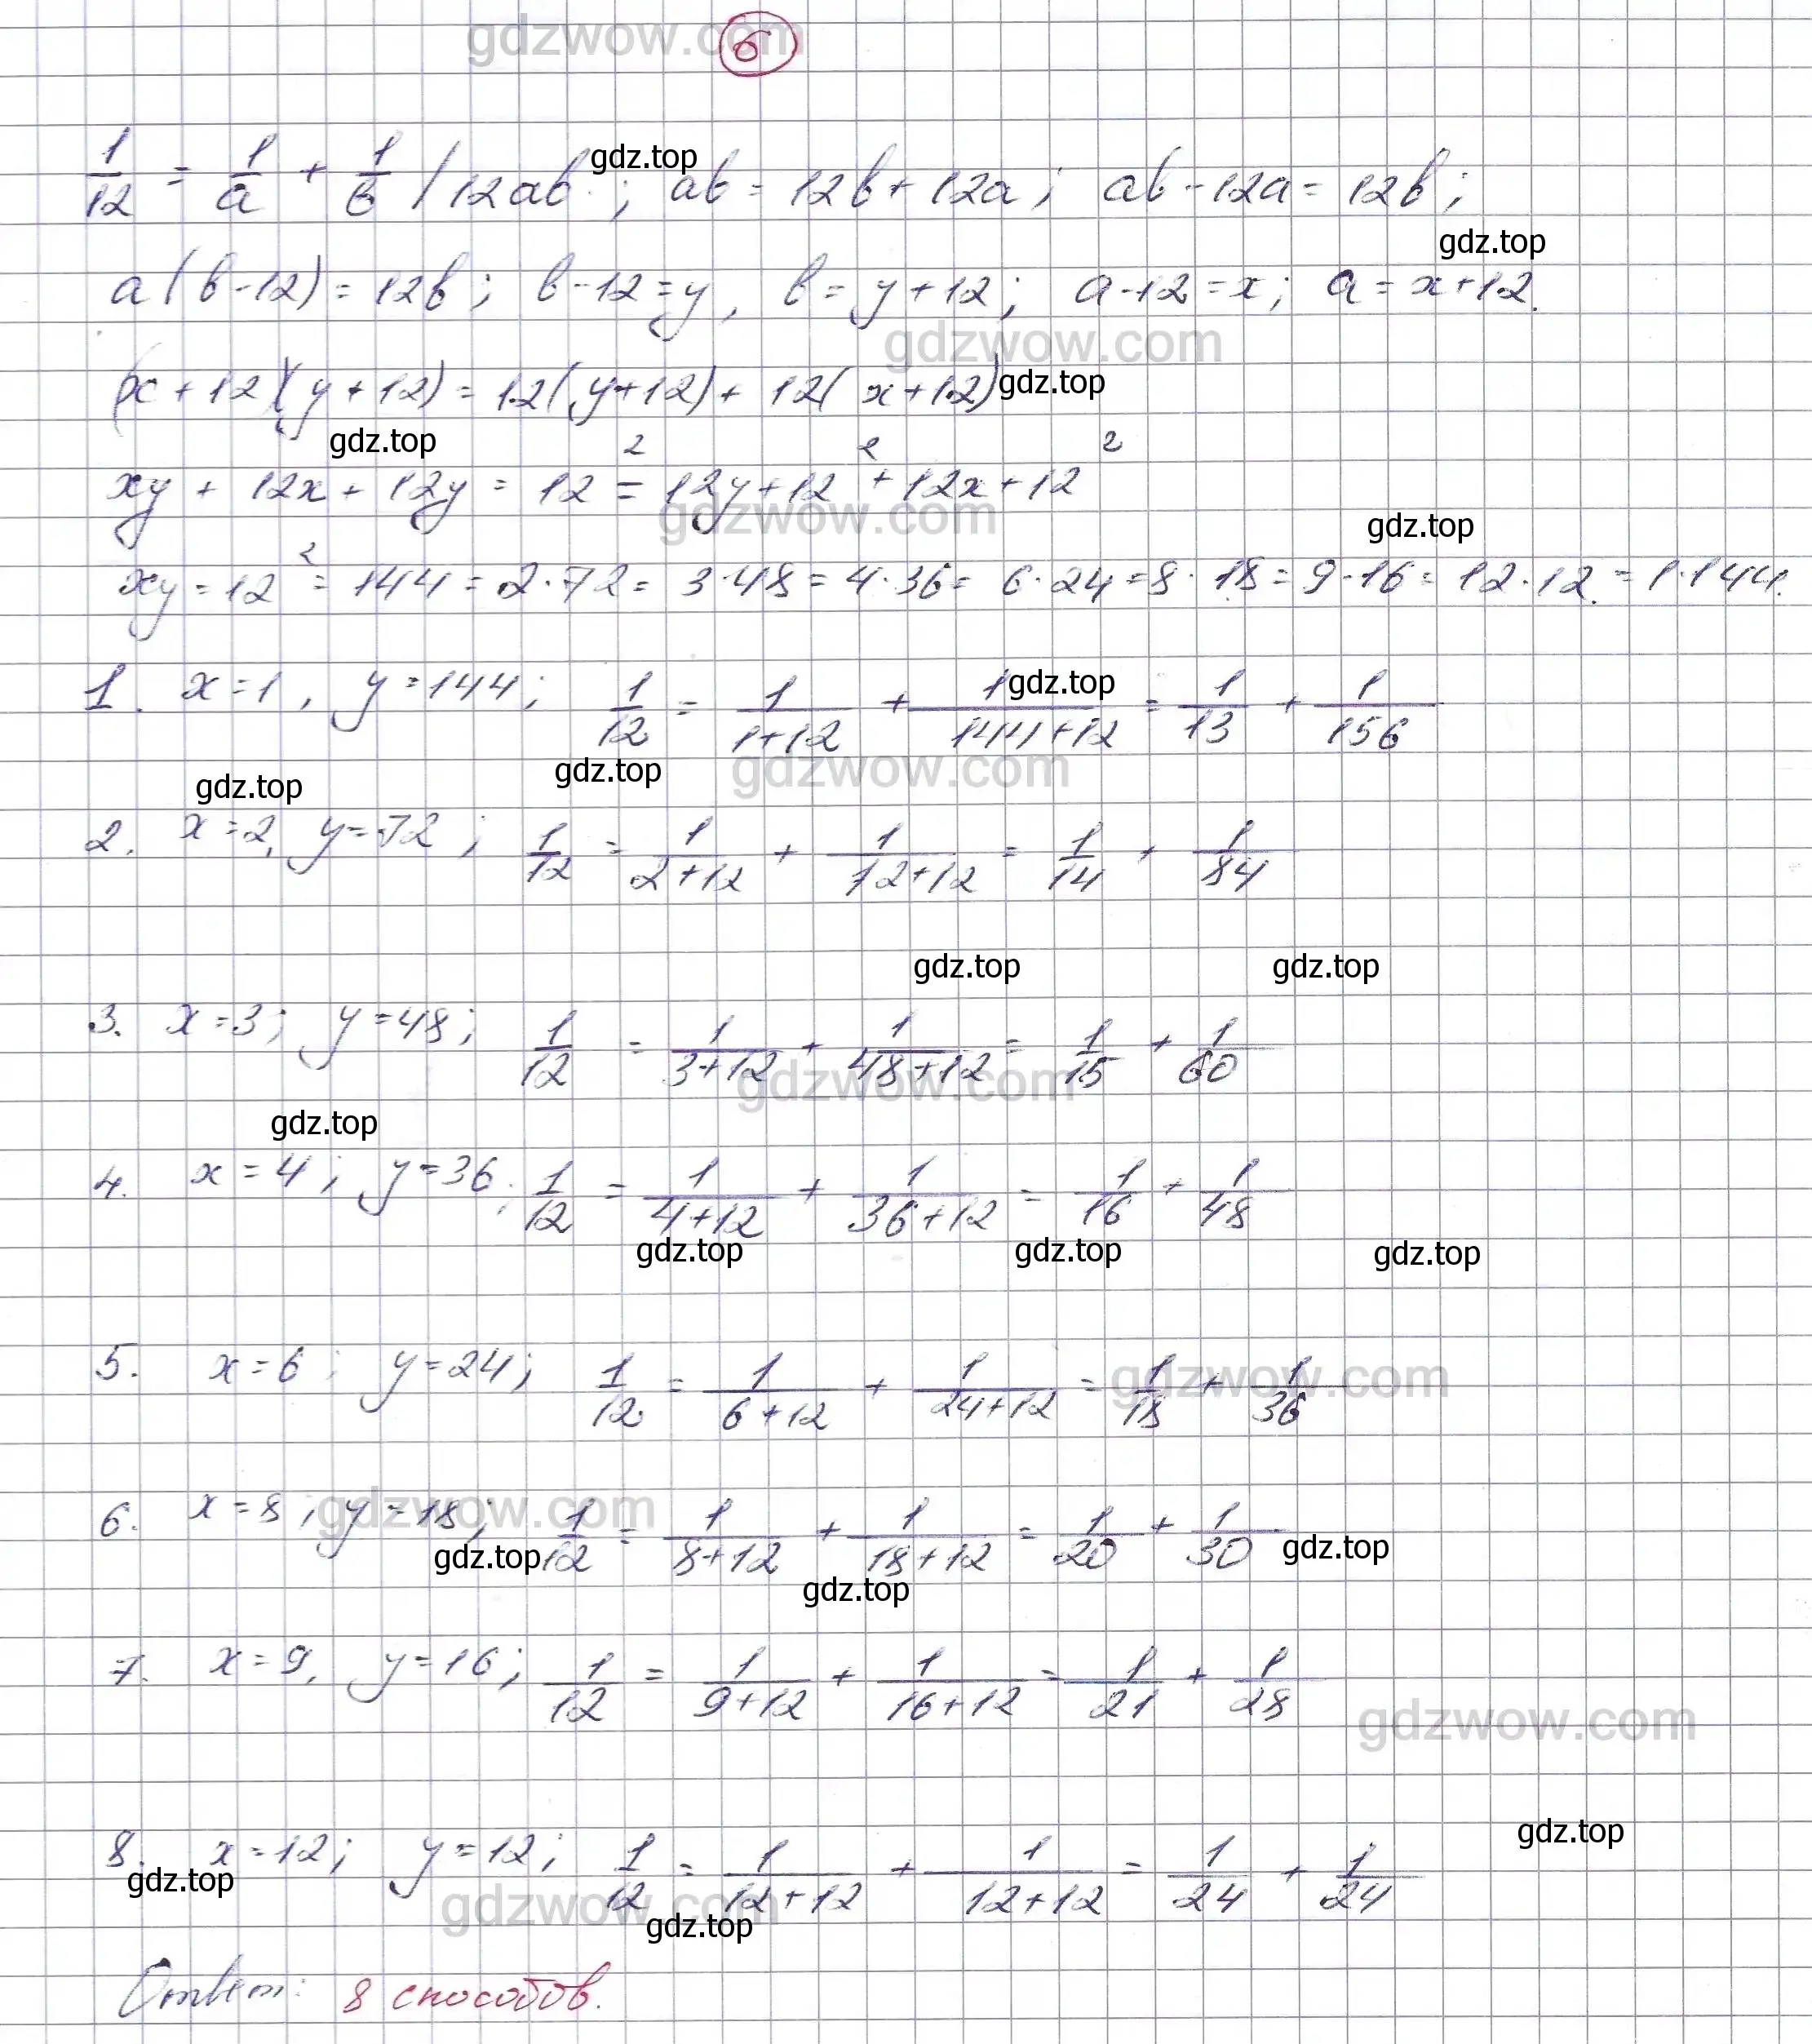 gdzwow.com
6
1/12 = 1/a + 1/b /12ab; ab = 12b + 12a; ab - 12a = 12b;
gdz.top
gdz.top
a(b-12) = 12b; b-12 = y, b = y+12; a-12 = x; a = x+12.
gdzwow.com
(x+12)(y+12) = 12(y+12) + 12(x+12)
gdz.top
gdz.top
xy + 12x + 12y = 12² = 12y + 12² + 12x + 12²
gdzwow.com
gdz.top
xy = 12² = 144 = 2·72 = 3·48 = 4·36 = 6·24 = 8·18 = 9·16 = 12·12. = 1·144.
1. x=1, y=144; 1/12 = 1/(1+12) + 1/(144+12) = 1/13 + 1/156
gdz.top
gdz.top
gdzwow.com
gdz.top
2. x=2, y=72; 1/12 = 1/(2+12) + 1/(72+12) = 1/14 + 1/84
gdz.top
gdz.top
3. x=3; y=48; 1/12 = 1/(3+12) + 1/(48+12) = 1/15 + 1/60
gdzwow.com
gdz.top
4. x=4; y=36; 1/12 = 1/(4+12) + 1/(36+12) = 1/16 + 1/48
gdz.top
gdz.top
gdz.top
5. x=6; y=24; 1/12 = 1/(6+12) + 1/(24+12) = 1/18 + 1/36
gdzwow.com
6. x=8; y=18; 1/12 = 1/(8+12) + 1/(18+12) = 1/20 + 1/30
gdzwow.com
gdz.top
gdz.top
gdz.top
7. x=9, y=16; 1/12 = 1/(9+12) + 1/(16+12) = 1/21 + 1/28
gdzwow.com
gdz.top
8. x=12; y=12; 1/12 = 1/(12+12) + 1/(12+12) = 1/24 + 1/24
gdz.top
gdzwow.com
gdz.top
Ответ: 8 способов.